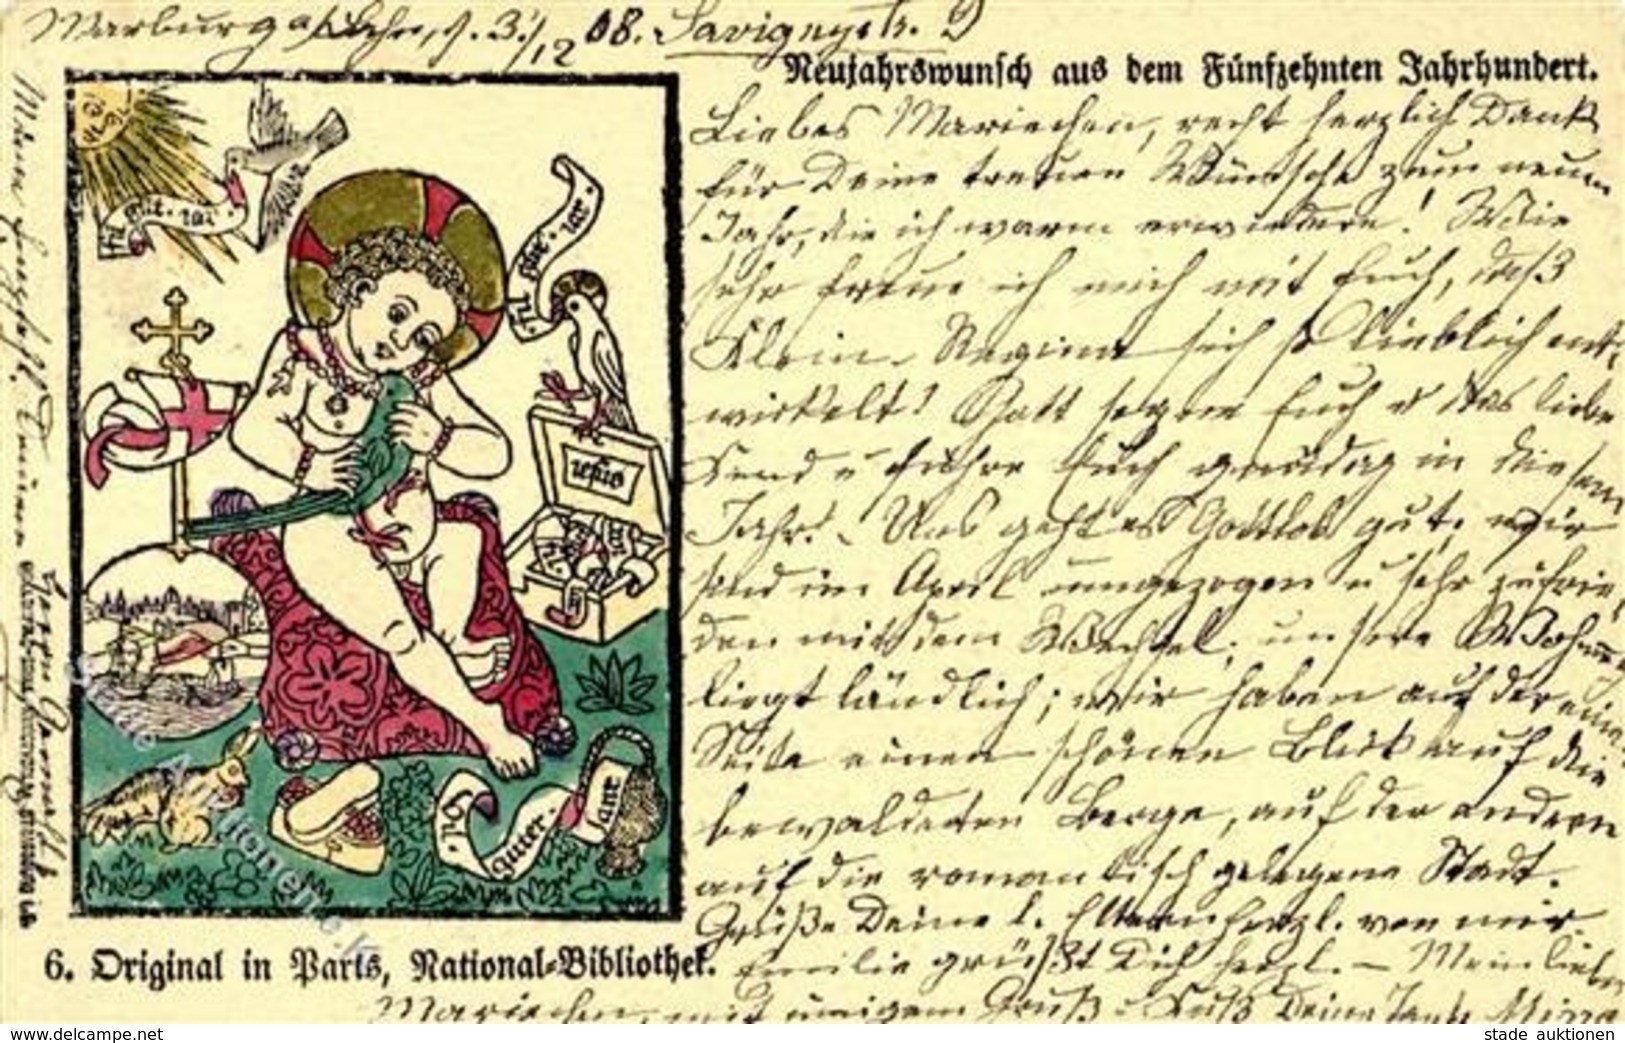 Marburg a/Lahn, d. 3./12 08. Savignystr. 9
Neujahrswunsch aus dem Fünfzehnten Jahrhundert.
Liebes Mariechen, recht herzlich Dank
für Deine treuen Wünsche zum neuen
Jahr, die ich warm erwidere! Wie
sehr freue ich mich mit Euch, daß
Klein-Regina sich so lieblich ent-
wickelt! Gott segne Euch u das liebe
Kind u führe Euch gnädig in diesem
Jahr. - Uns geht es Gottlob gut, wir
sind im April umgezogen u sehr zufrie-
den mit dem Wechsel; unsere Wohnung
liegt ländlich; wir haben auf der einen
Seite einen schönen Blick auf die
bewaldeten Berge, auf der andern
auf die romantisch gelegene Stadt.
Grüße Deine l. Eltern herzl. von mir.
Emilie grüßt Dich herzl. - Mein liebes
Mariechen, mit innigem Gruß u Kuß Deine Tante Minna
jesus
vil
guter
Jare
6. Original in Paris, National-Bibliothek.
www.delcampe.net
stade auktionen